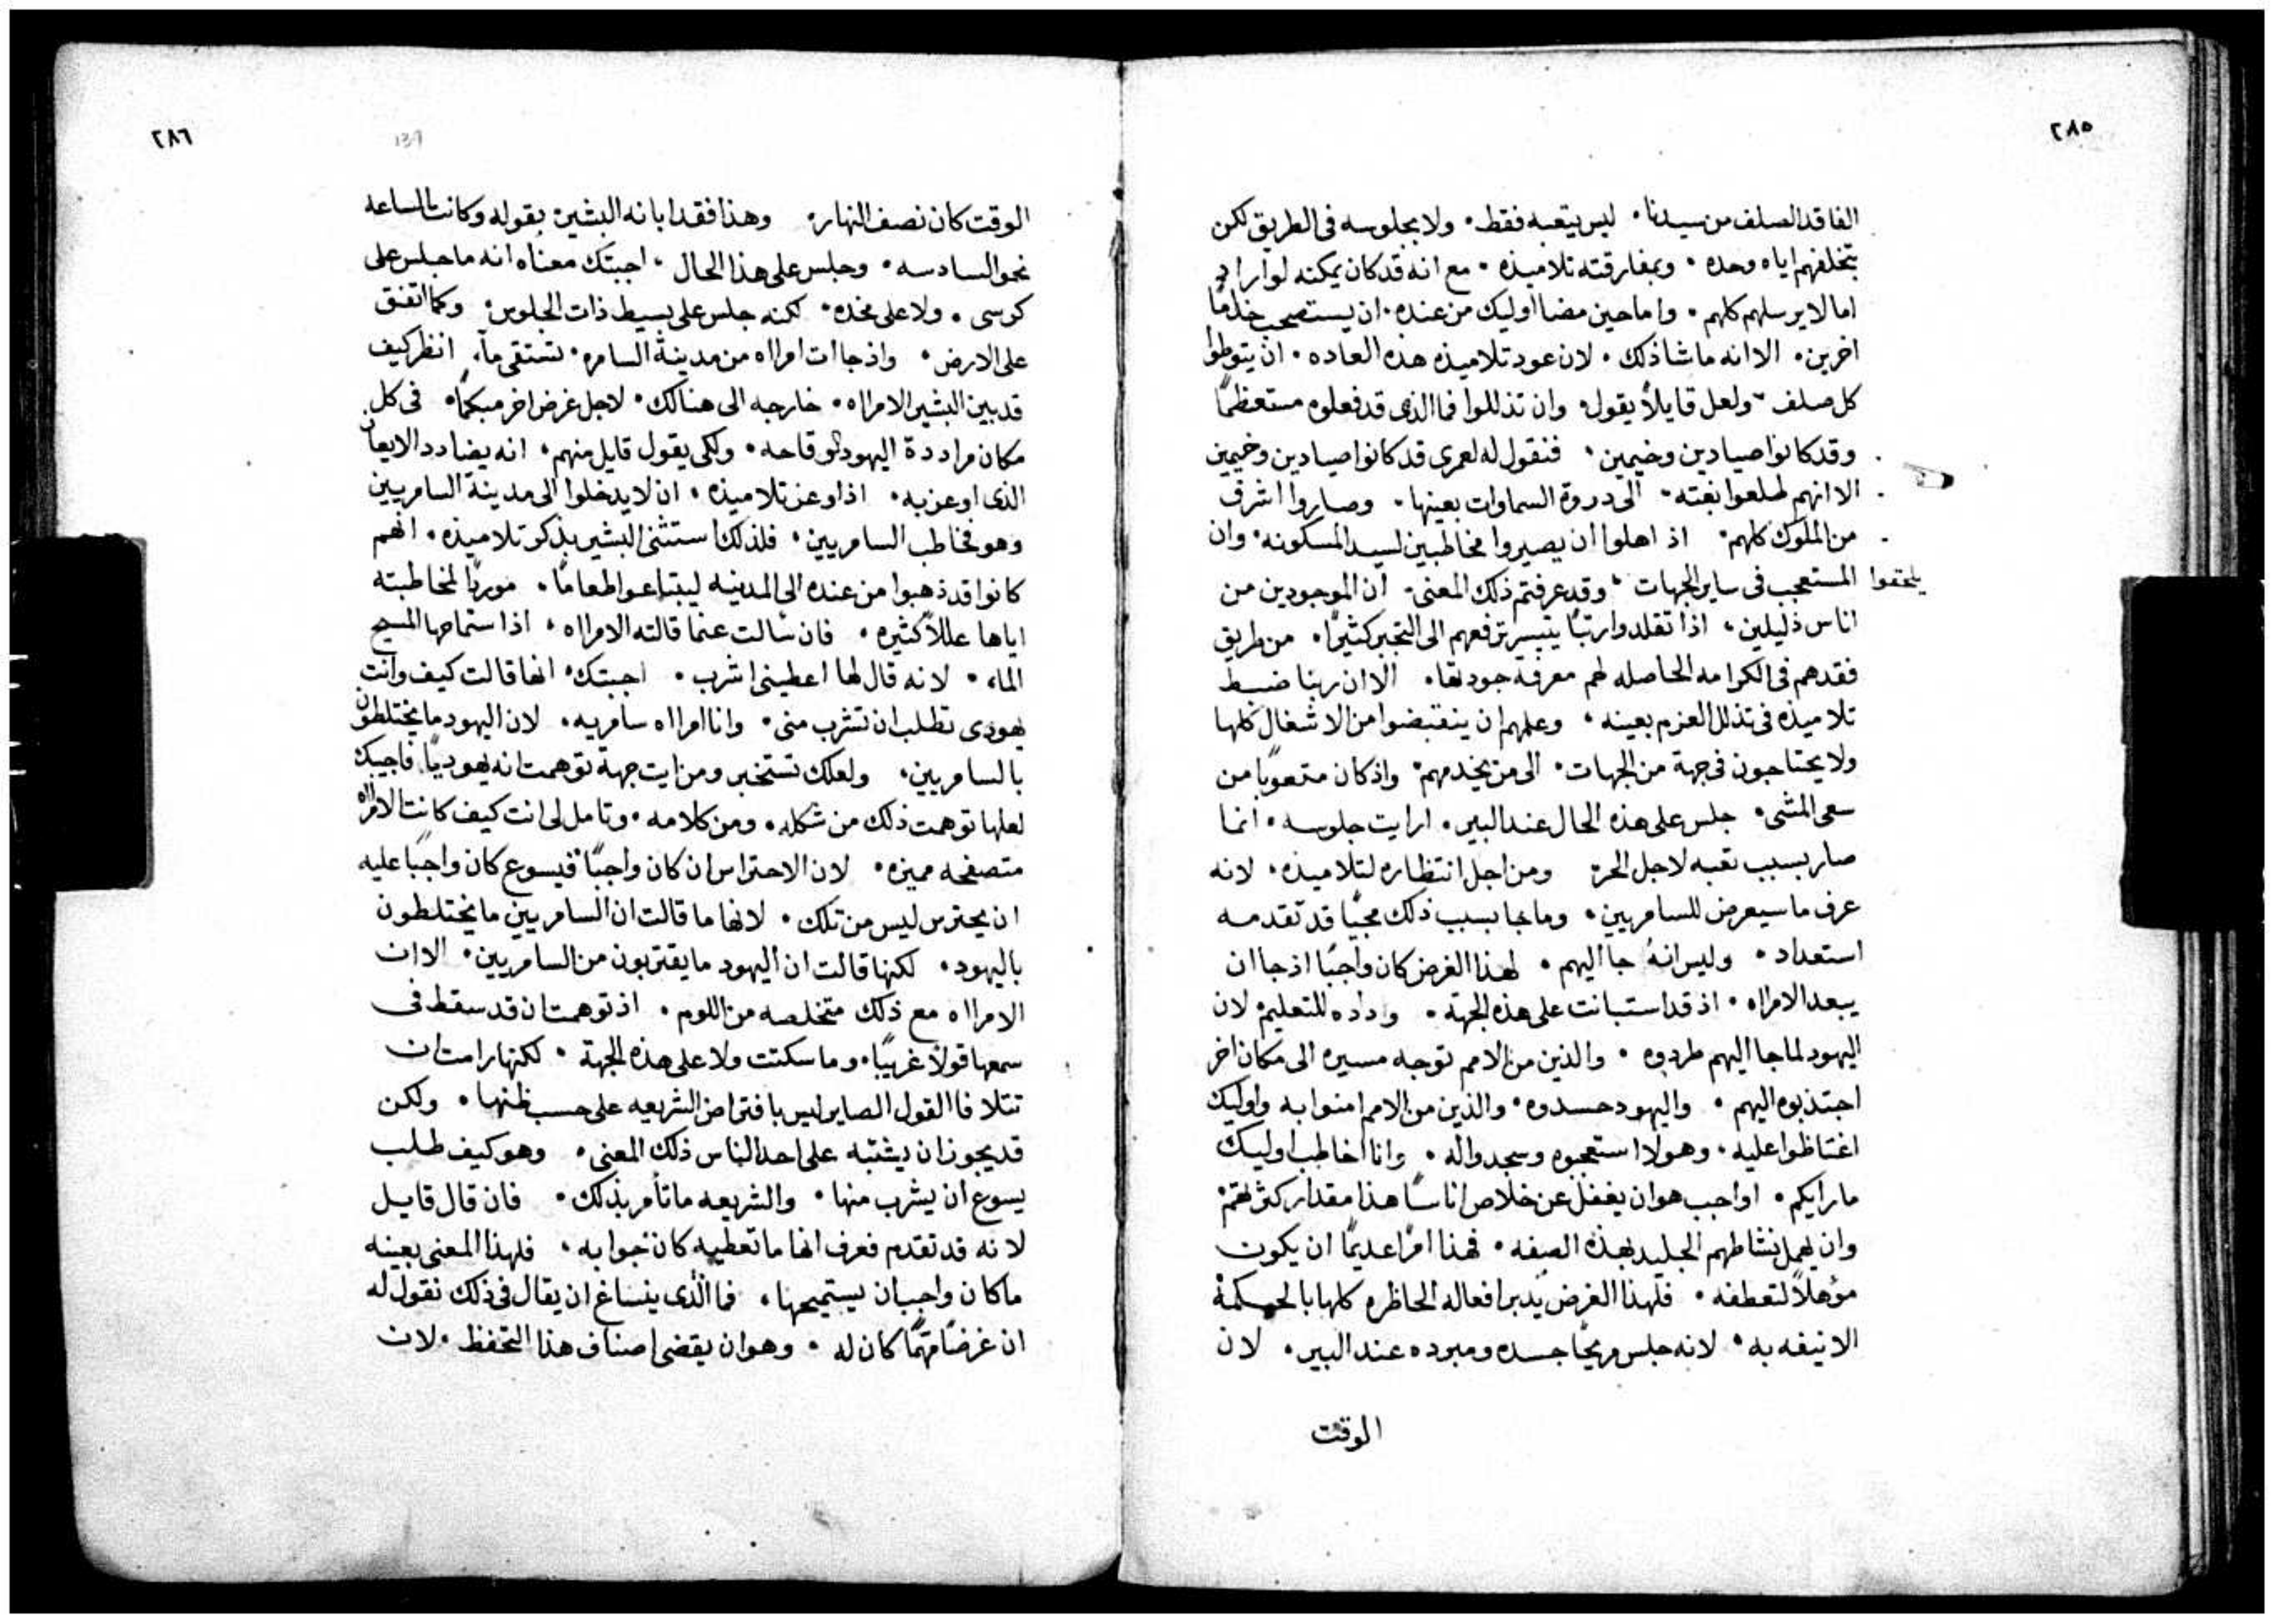 ٢٨٥
الفاقد الصلف من سيدنا٠ ليس بتعبه فقط٠ ولا بجلوسه فى الطريق لكن
بتخلفهم اياه وحده ٠ وبمفارقته تلاميذه ٠ مع انه قد كان يمكنه لو اراد
اما لا يرسلهم كلهم ٠ واما حين مضا اوليك من عنده٠ ان يستصحب خدامًا
اخرين٠ الا انه ما شا ذلك ٠ لان عود تلاميذه هذه العاده ٠ ان يتوطوا
كل صلف ٠ ولعل قايلاً يقول٠ وان تذللوا فما الذى قد فعلوه مستعظمًا
وقد كانوا صيادين وخيمين٠ فنقول له لعمرى قد كانوا صيادين وخيمين
الا انهم طلعوا بغته٠ الى دروة السماوات بعينها٠ وصاروا اشرف
من الملوك كلهم٠ اذ اهلوا ان يصيروا مخاطبين لسيد المسكونه٠ وان
يلحقوا المستعجب فى ساير الجهات ٠ وقد عرفتم ذلك المعنى٠ ان الموجودين من
اناس ذليلين٠ اذا تقلدوا رتبًا يتيسر ترفعهم الى التجبر كثيرًا٠ من طريق
فقدهم فى الكرامه الحاصله لهم معرفة جودتها٠ الا ان ربنا ضبط
تلاميذه فى تذلل العزم بعينه ٠ وعلمهم ان ينقبضوا من الاشغال كلها
ولا يحتاجون فى جهة من الجهات٠ الى من يخدمهم٠ واذ كان متعوبًا من
سعى المشى٠ جلس على هذه الحال عند البير٠ ارايت جلوسه ٠ انما
صار بسبب تعبه لاجل الحر٠ ومن اجل انتظاره لتلاميذه٠ لانه
عرف ما سيعرض للسامريين٠ وما جا بسبب ذلك مجيًا قد تقدمه
استعداد ٠ وليس انهُ جا اليهم ٠ لهذا الغرض كان واجبًا اذ جا ان
يبعد الامراه ٠ اذ قد استبانت على هذه الجهة ٠ وداده للتعليم٠ لان
اليهود لما جا اليهم طردوه ٠ والذين من الامم توجه مسيره الى مكان اخر
اجتذبوه اليهم ٠ واليهود حسدوه٠ والذين من الامم امنوا به واوليك
اغتاظوا عليه٠ وهولا استعجبوه وسجدوا له ٠ وانا اخاطب اوليك
ما رايكم ٠ اواجب هو ان يغفل عن خلاص اناسًا هذا مقدار كثرتهم٠
وان يهمل نشاطهم الجليد بهذه الصفه ٠ فهذا امرًا عديمًا ان يكون
مؤهلاً لتعطفه ٠ فلهذا الغرض يدبر افعاله الحاظره كلها بالحكمة
الانيفه به ٠ لانه جلس مريحًا جسده ومبرده عند البير٠ لان
الوقت
٢٨٦
137
الوقت كان نصف النهار٠ وهذا فقد ابانه البشير٠ بقوله وكانت الساعه
نحو السادسه ٠ وجلس على هذا الحال ٠ اجبتك معناه انه ما جلس على
كرسى ٠ ولا على مخده٠ لكنه جلس على بسيط ذات الجلوس٠ وكما اتفق
على الارض٠ واذ جاات امراه من مدينة السامره٠ تستقى مآ٠ انظر كيف
قد بين البشير الامراه ٠ خارجه الى هنالك٠ لاجل غرض اخر مبكمًا٠ فى كل
مكان مراددة اليهود لوقاحه ٠ ولكى يقول قايل منهم٠ انه يضادد الايعان
الذى اوعز به٠ اذ اوعز تلاميذه ٠ ان لا يدخلوا الى مدينة السامريين
وهو فخاطب السامريين٠ فلذلك استثنى البشير بذكر تلاميذه ٠ انهم
كانوا قد ذهبوا من عنده الى المدينه ليبتاعوا طعامًا٠ موردًا لمخاطبته
اياها عللاً كثيره ٠ فان سٔالت عنما قالته الامراه ٠ اذ استماحها المسيح
الماء ٠ لانه قال لها اعطينى اشرب ٠ اجبتك٠ انها قالت كيف وانت
يهودى تطلب ان تشرب منى٠ وانا امراه سامريه٠ لان اليهود ما يختلطون
بالسامريين٠ ولعلك تستخبر ومن ايت جهة توهمت انه يهوديًا٠ فاجيبك
لعلها توهمت ذلك من شكله ٠ ومن كلامه ٠ وتامل لى انت كيف كانت الامراه
متصفحه مميزه ٠ لان الاحتراس ان كان واجبًا فيسوع كان واجبًا عليه
ان يحترس ليس من تلك ٠ لانها ما قالت ان السامريين ما يختلطون
باليهود٠ لكنها قالت ان اليهود ما يقتربون من السامريين٠ الا ان
الامراه مع ذلك متخلصه من اللوم ٠ اذ توهمت ان قد سقط فى
سمعها قولاً غريبًا٠ وما سكتت ولا على هذه الجهة ٠ لكنها رامت ان
تتلافا القول الصاير ليس بافتراض الشريعه على حسب ظنها ٠ ولكن
قد يجوز ان يشتبه على احد الناس ذلك المعنى ٠ وهو كيف طلب
يسوع ان يشرب منها ٠ والشريعه ما تأمر بذلك ٠ فان قال قايل
لانه قد تقدم فعرف انها ما تعطيه كان جوابه ٠ فلهذا المعنى بعينه
ما كان واجب ان يستميحها ٠ فما الذى ينساغ ان يقال فى ذلك نقول له
ان غرضًا مهمًا كان له ٠ وهو ان يقضى اصناف هذا التحفظ ٠ لان